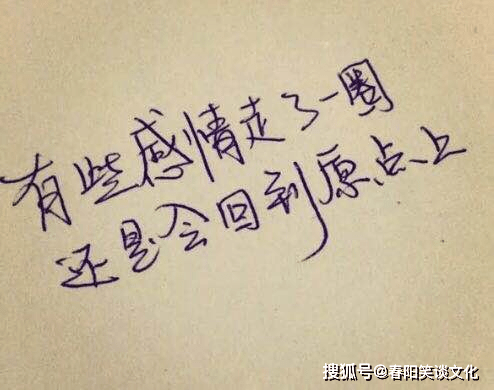 有些感情走了一圈
还是会回到原点上
搜狐号@春阳笑谈文化